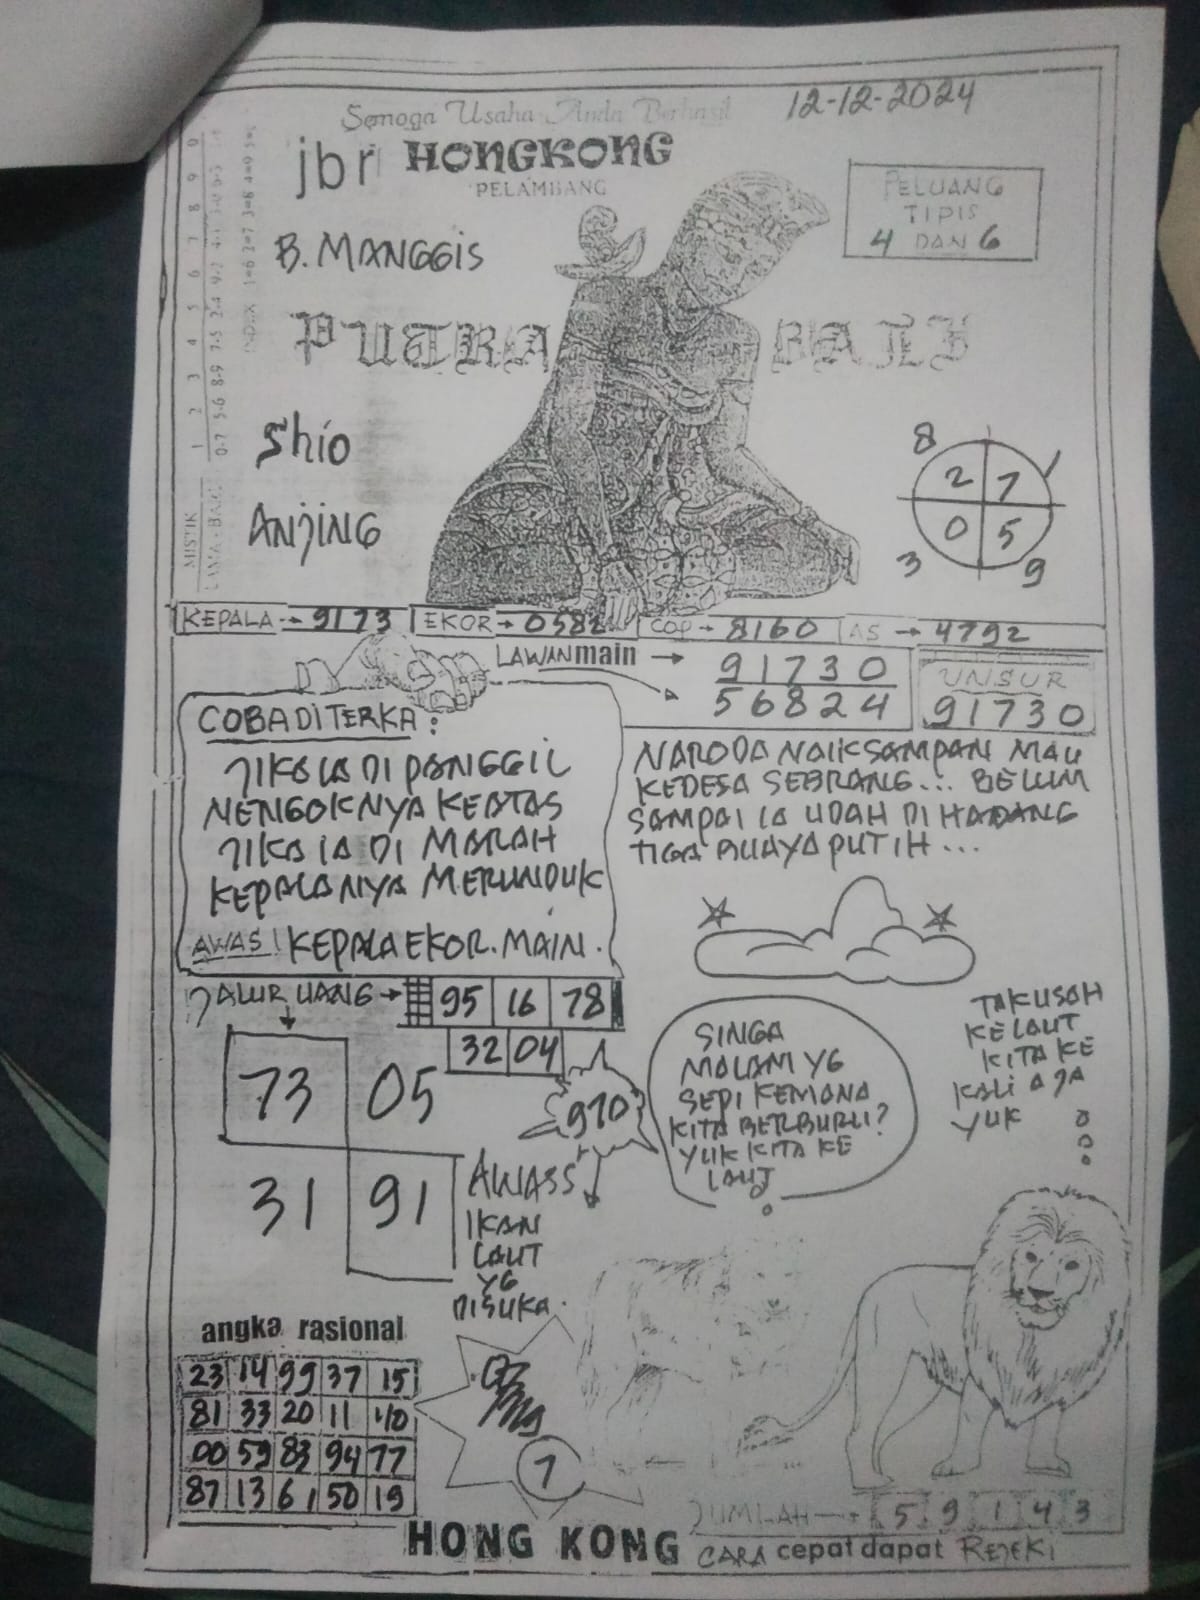 Semoga Usaha Anda Berhasil
12-12-2024
jbr HONGKONG
PELAMBANG
PELUANG
TIPIS
4 DAN 6
B. MANGGIS
PUTRA BALI
Shio
ANJING
MISTIK 1 2 3 4 5 6 7 8 9 0
8
2 7
0 5
3 9
KEPALA → 9173 EKOR → 0582 COP → 8160 AS → 4792
LAWAN main → 91730
56824
UNSUR
91730
COBA DITERKA :
JIKA IA DI PANGGIL
MENGOKNYA KEATAS
JIKA IA DI MARAH
KEPALANYA MERUNDUK
AWAS! KEPALA EKOR. MAIN.
NARODA NAIK SAMPAN MAU
KEDESA SEBRANG... BELUM
SAMPAI IA UDAH DI HADANG
TIGA BUAYA PUTIH...
JALUR UANG → 95 16 78
32 04
73 05
31 91
970
AWASS
IKAN
LAUT
YG
DISUKA.
SINGA
MALAM YG
SEPI KEMANA
KITA BERBURU?
YUK KITA KE
LAUT
TAKUSAH
KE LAUT
KITA KE
KALI AJA
YUK
angka rasional
23 14 99 37 15
81 33 20 11 40
00 59 83 94 77
87 13 61 50 19
7
JUMLAH → 5 9 1 4 3
HONG KONG CARA cepat dapat REJEKI